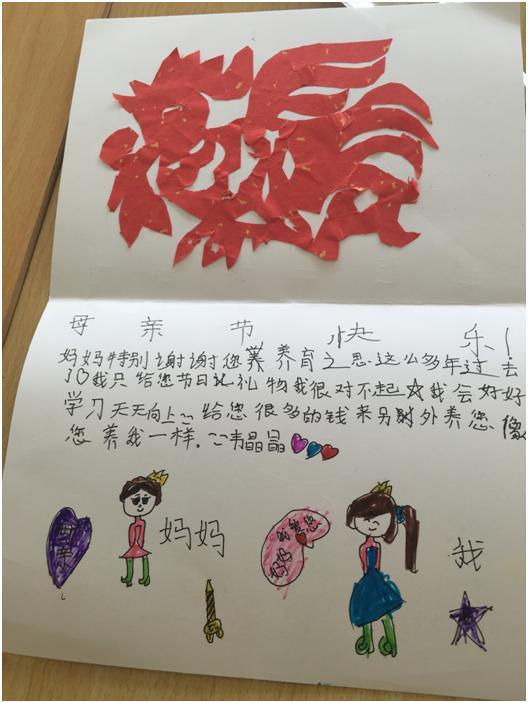 母亲节快乐!
妈妈特别谢谢您养育之恩这么多年过去
了我只给您节日礼物我很对不起☆我会好好
学习天天向上~给您很多的钱来另外养您像
您养我一样。~韦晶晶
母亲
妈妈
我爱您
妈妈
我